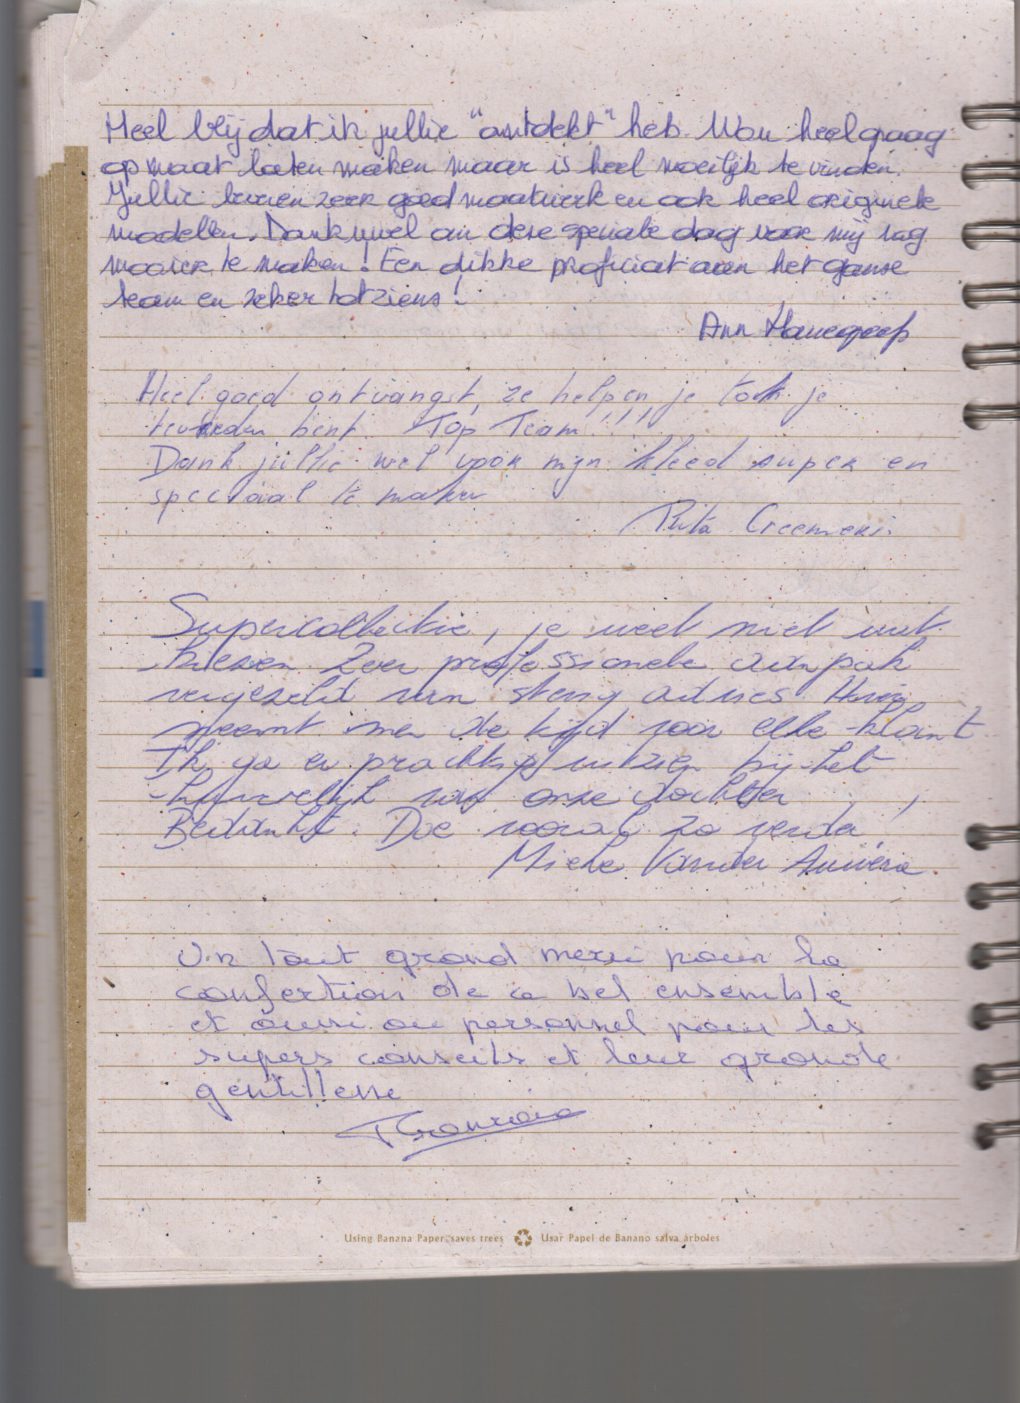 Heel blij dat ik jullie "ontdekt" heb. Wou heel graag
op maat laten maken maar is heel moeilijk te vinden.
Jullie leveren zeer goed maatwerk en ook heel originele
modellen. Dank u wel om deze speciale dag voor mij nog
mooier te maken! Een dikke proficiat aan het ganse
team en zeker tot ziens!
Ann
Heel goed ontvangst, ze helpen je tot je
tevreden bent. Top Team!!!
Dank jullie wel voor mijn kleed super en
speciaal te maken
Rita Creemers
Supercollectie, je weet niet wat
kiezen. Zeer professionele aanpak
vergezeld van stevig advies. Hierin
neemt men de tijd voor elke klant
Ik ga er prachtig uitzien bij het
huwelijk van onze dochter
Bedankt. Doe vooral zo verder!
Mieke Vander
Un tout grand merci pour la
confection de ce bel ensemble
et aussi au personnel pour les
supers conseils et leur grande
gentillesse
Using Banana Paper saves trees Usar Papel de Banano salva árboles